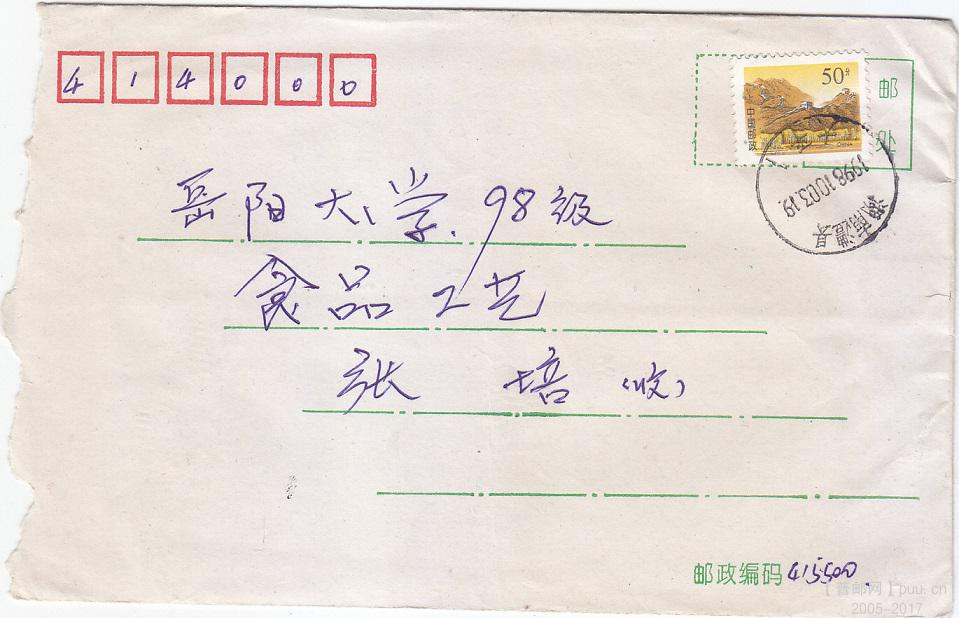 414000
50分
中国邮政
CHINA
邮
处
1998.10.03.19
湖南澧县
岳阳大学.98级
食品工艺
张培(收)
邮政编码415500
【普邮网】puu.cn
2005-2017